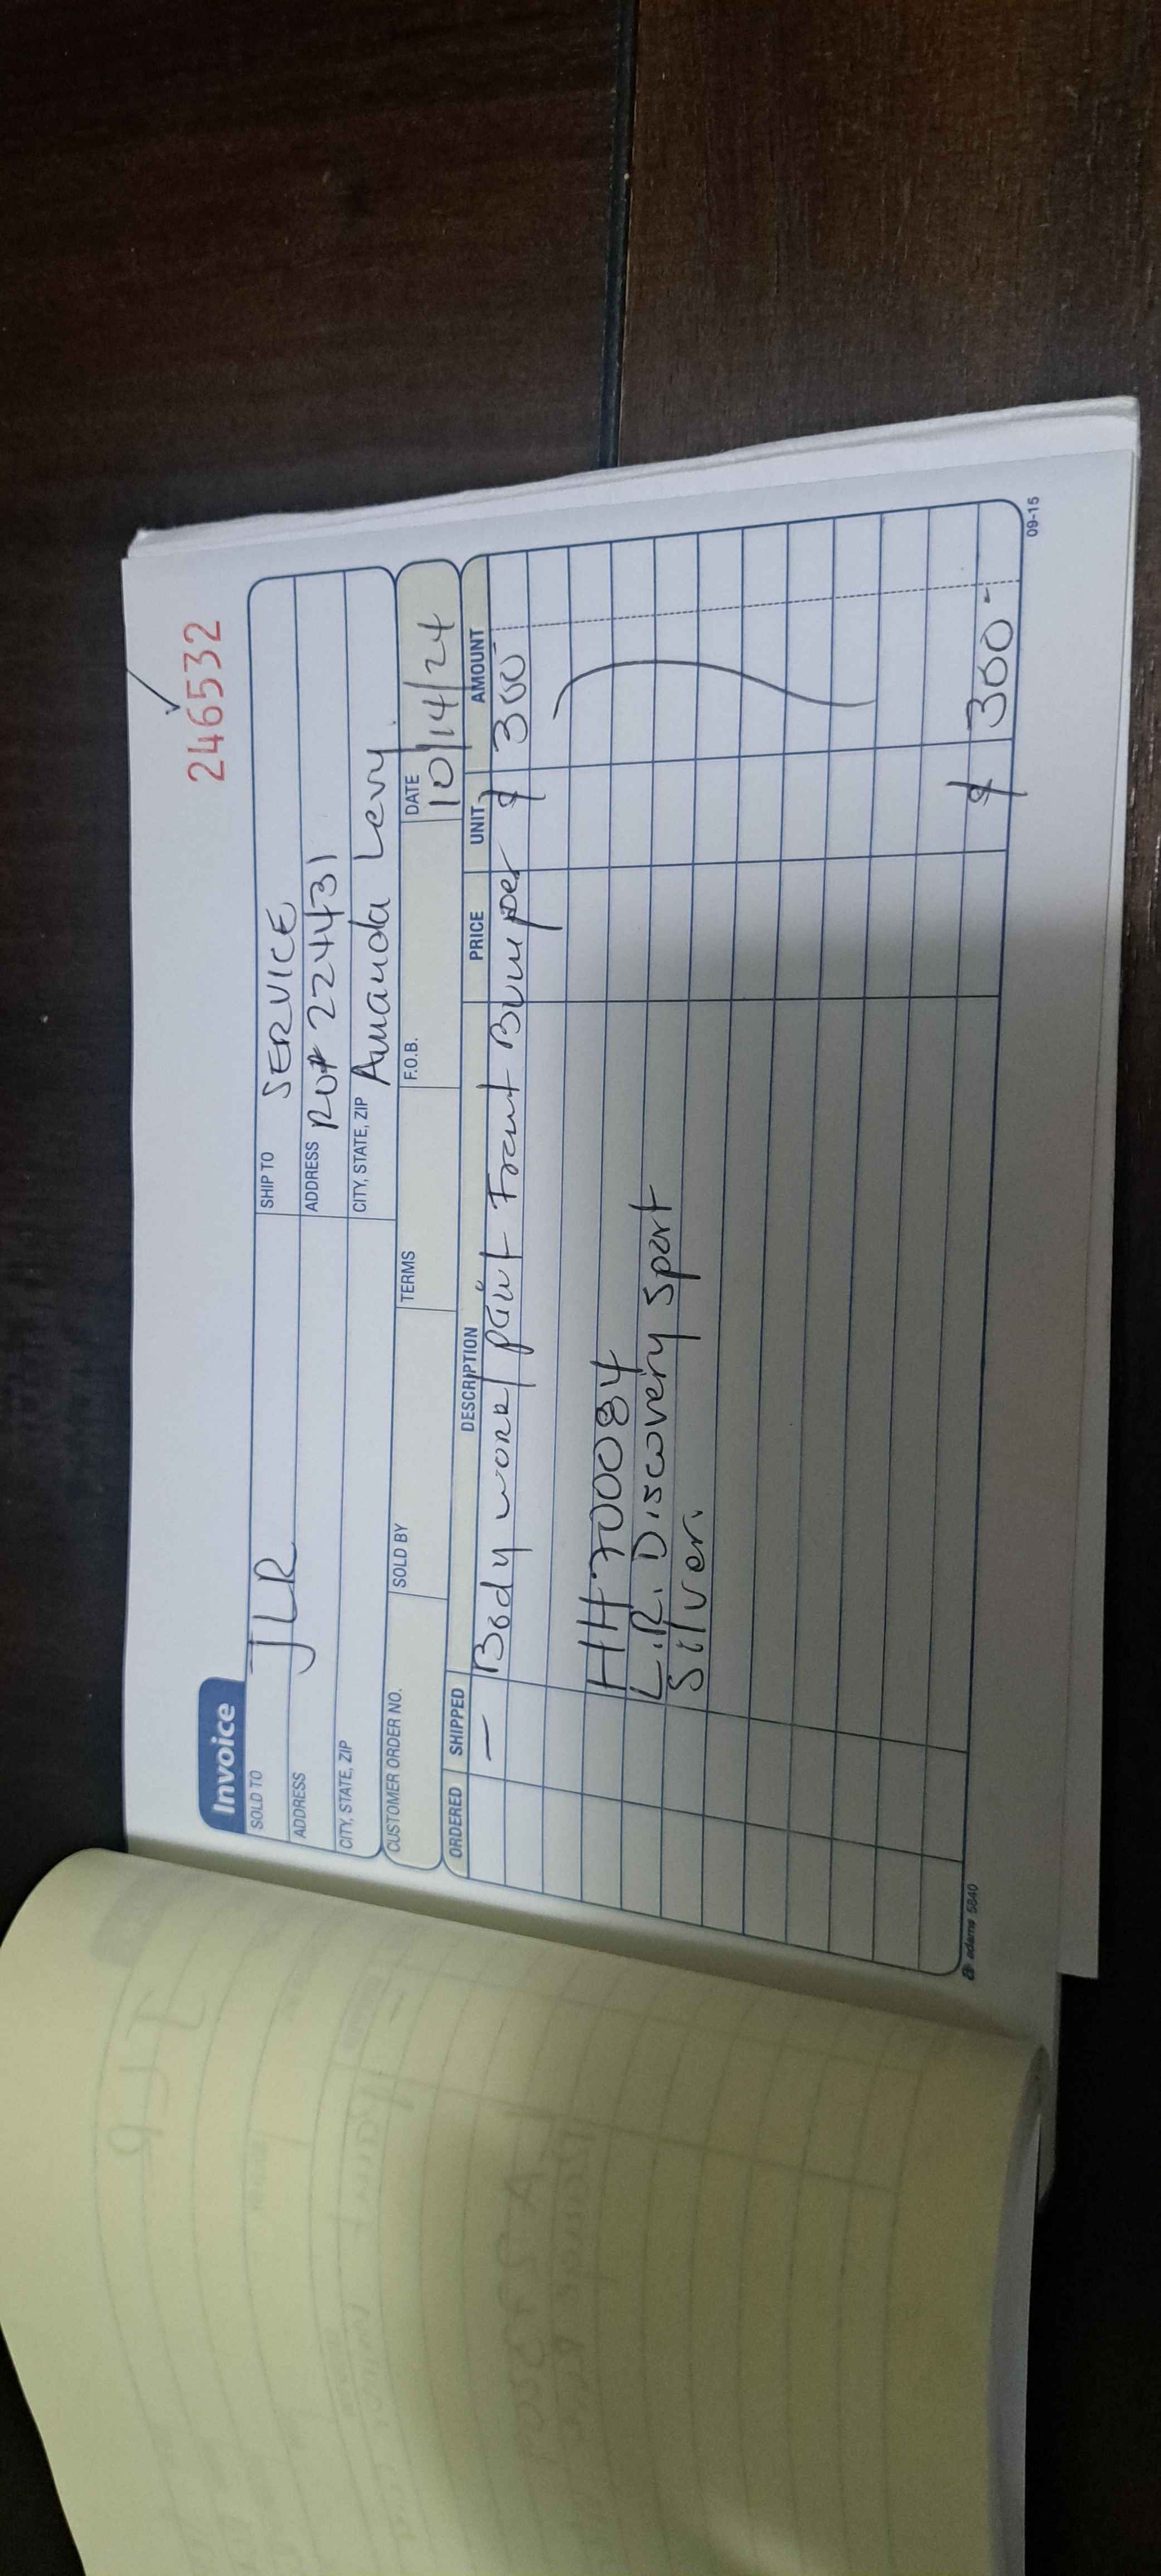 246532
Invoice
SOLD TO JLR
SHIP TO SERVICE
ADDRESS
ADDRESS RO# 224431
CITY, STATE, ZIP
CITY, STATE, ZIP Amanda Levy
CUSTOMER ORDER NO. SOLD BY TERMS F.O.B. DATE 10/14/24
ORDERED SHIPPED DESCRIPTION PRICE UNIT AMOUNT
– Body work/paint Front Bumper $ 300
HH70084
L.R. Discovery Sport
Silver.
$ 300-
adams 5840 09-15